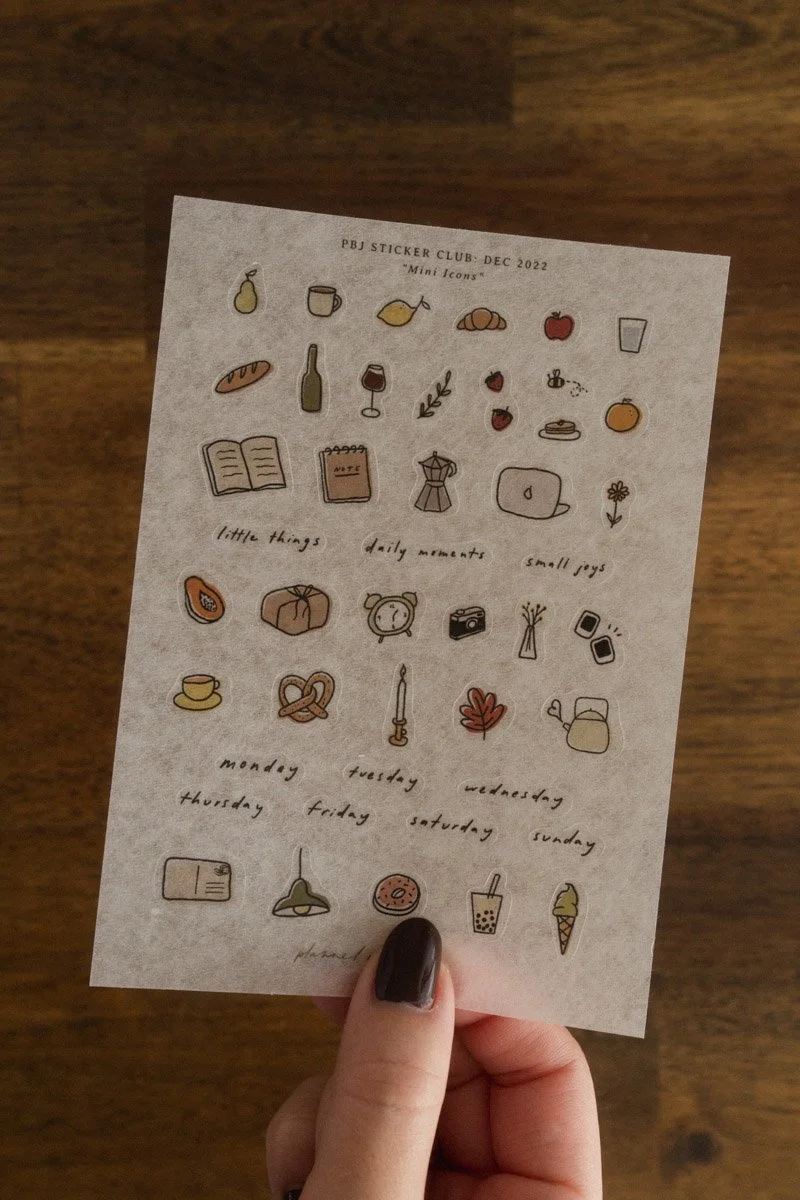 PBJ STICKER CLUB: DEC 2022
"Mini Icons"
NOTE
little things daily moments small joys
monday tuesday wednesday
thursday friday saturday sunday